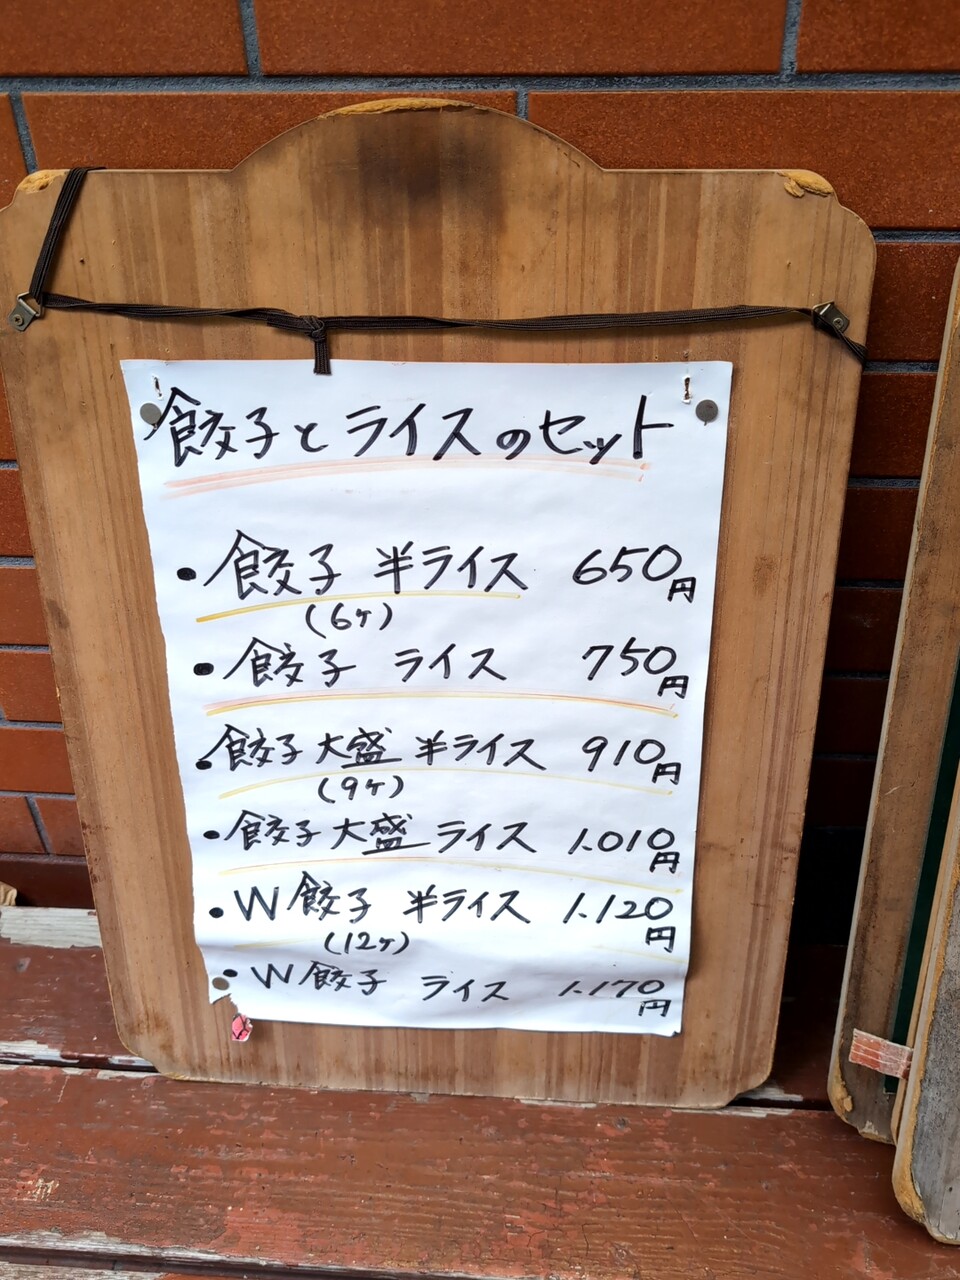 餃子とライスのセット
・餃子 半ライス 650円
(6ケ)
・餃子 ライス 750円
・餃子 大盛 半ライス 910円
(9ケ)
・餃子 大盛 ライス 1.010円
・W餃子 半ライス 1.120円
(12ケ)
・W餃子 ライス 1.170円